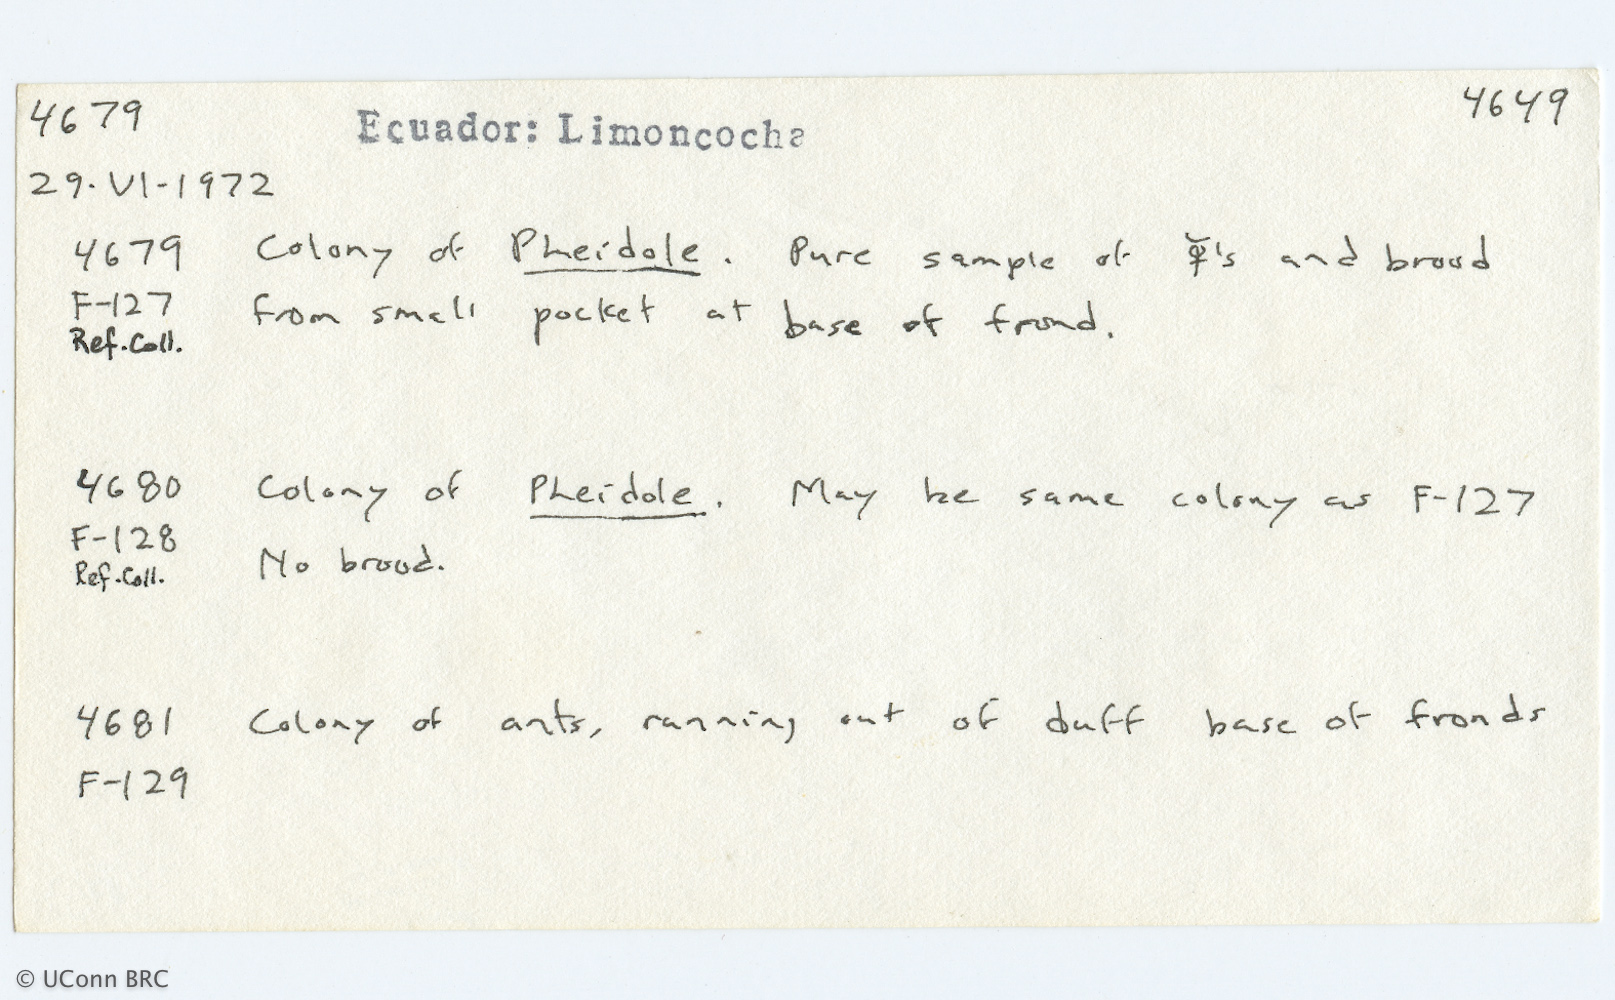 4679 Ecuador: Limoncocha 4649
29·VI-1972
4679 Colony of Pheidole. Pure sample of ☿'s and brood
F-127 from small pocket at base of frond.
Ref. Coll.
4680 Colony of Pheidole. May be same colony as F-127
F-128 No brood.
Ref. Coll.
4681 Colony of ants, running out of duff base of fronds
F-129
© UConn BRC